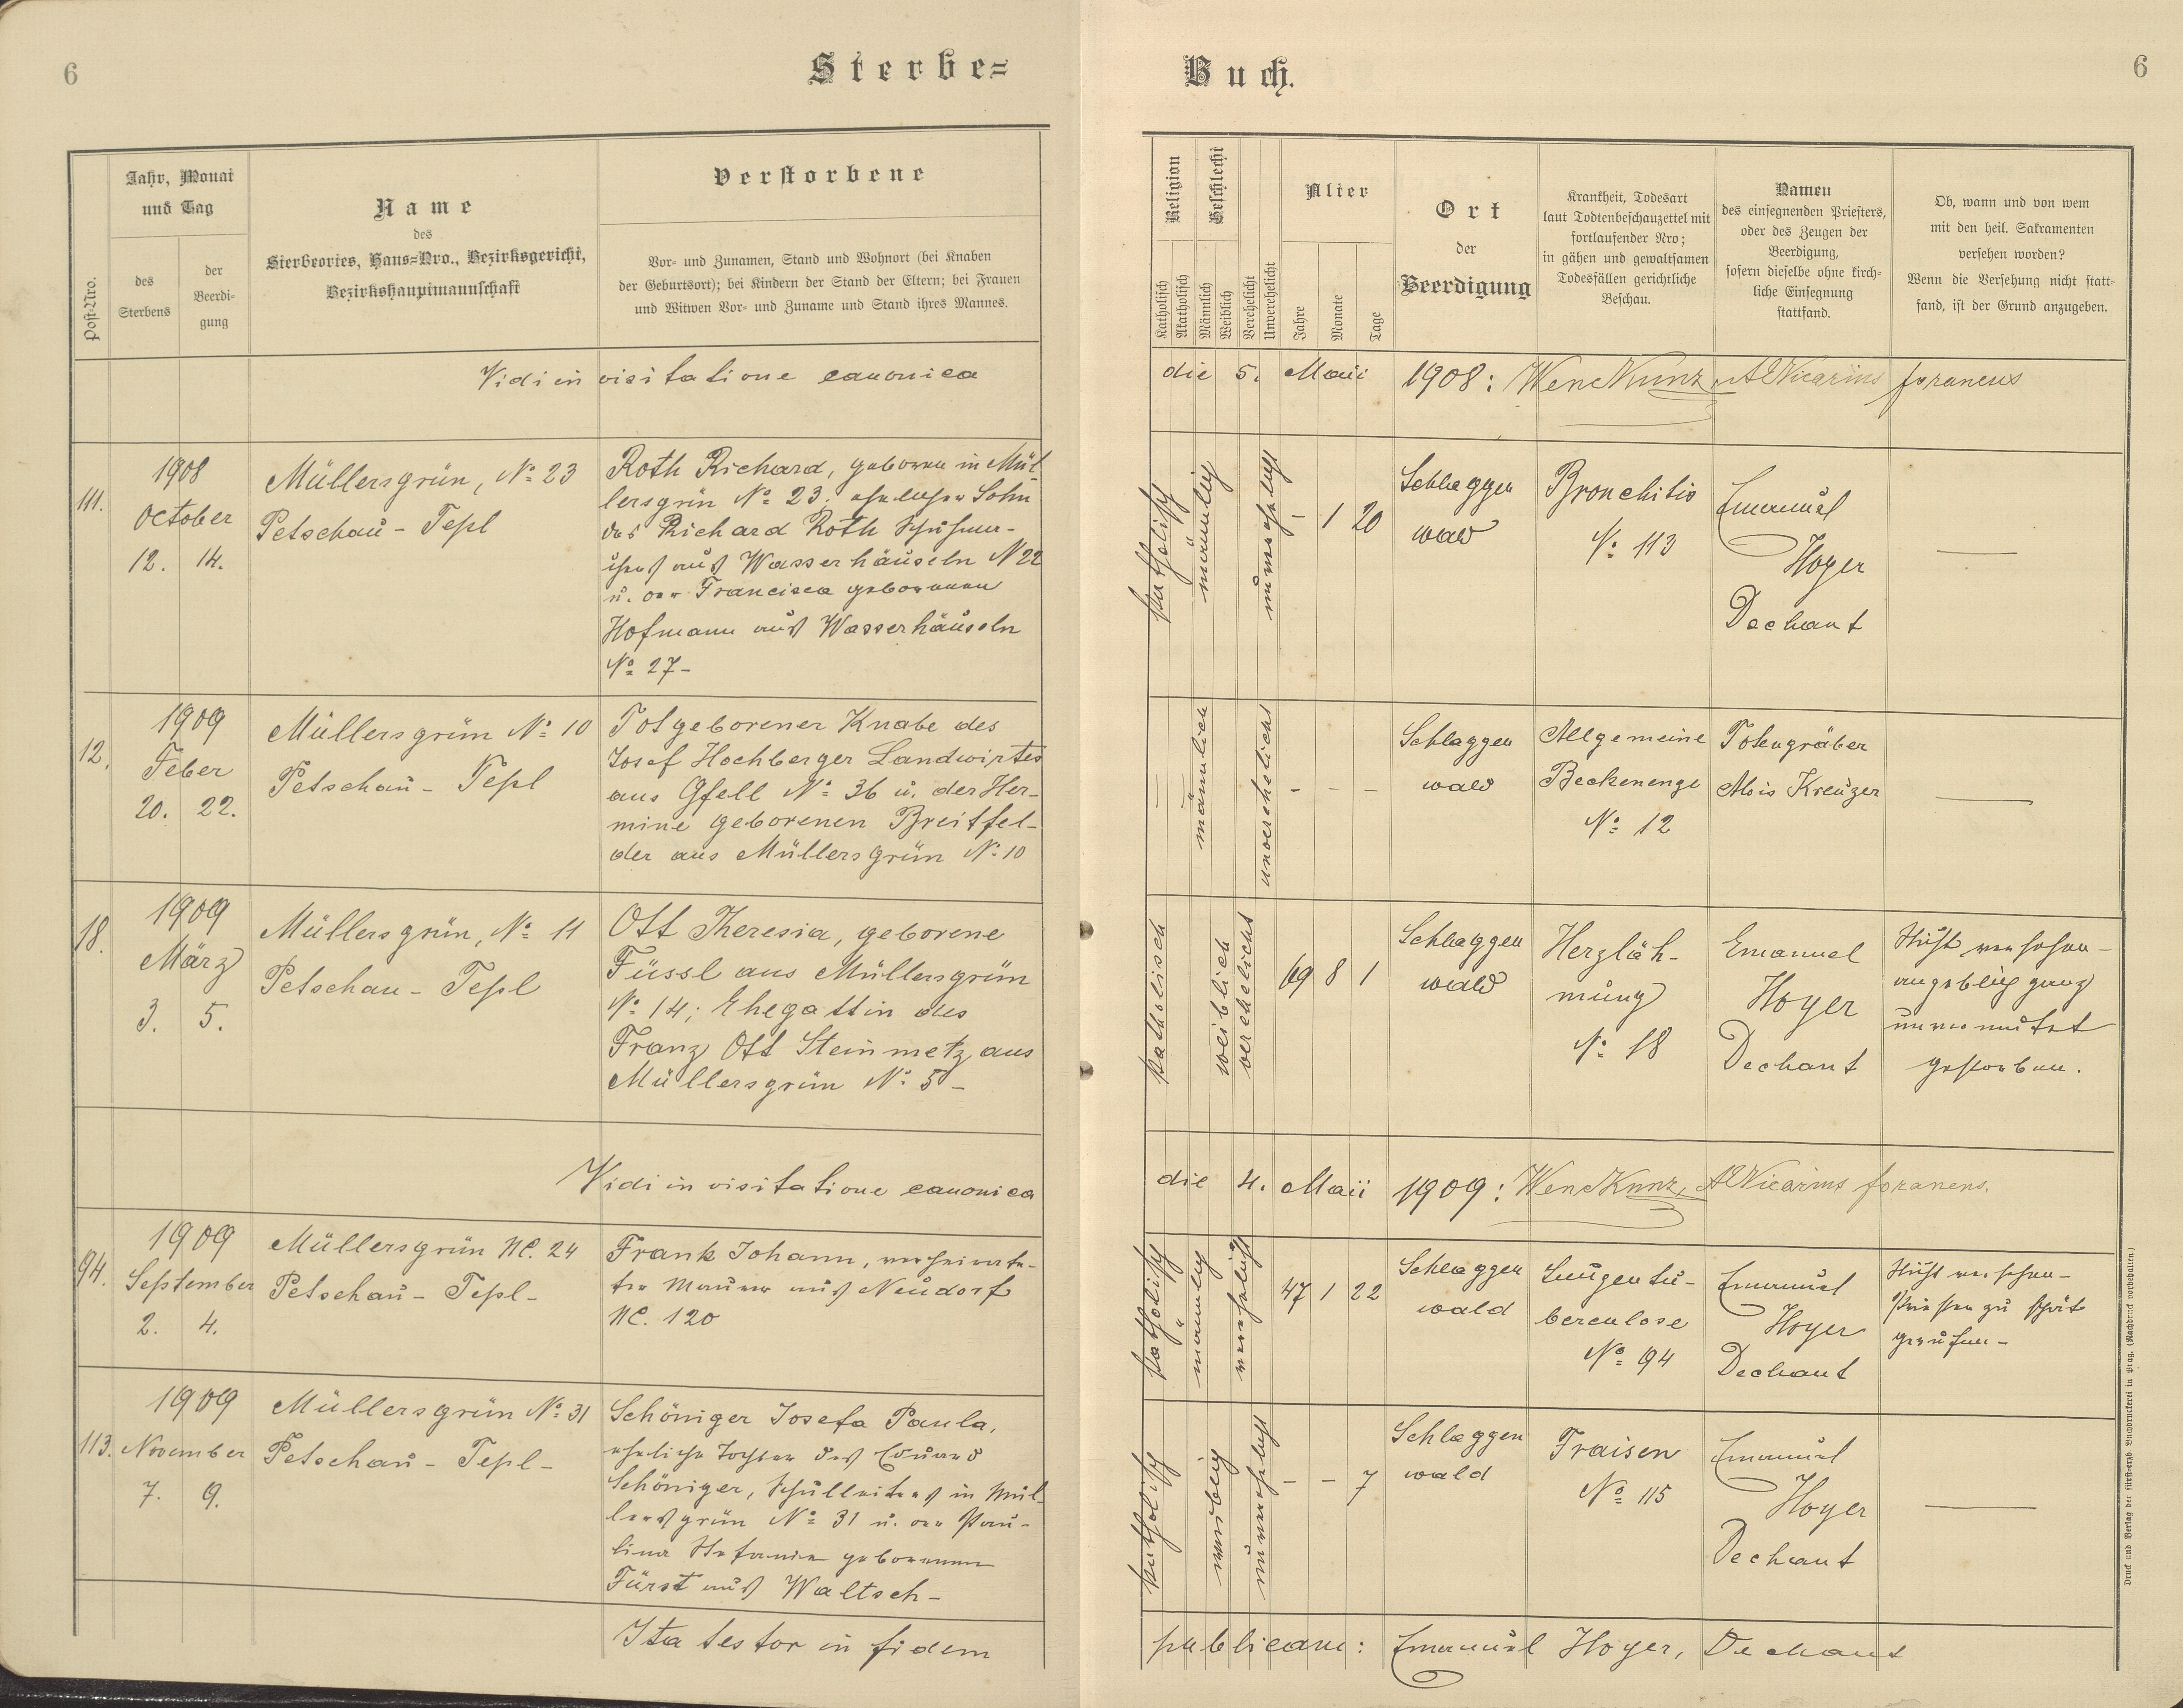 6
Sterbe=
Buch.
6
Post-Nro.
Jahr, Monat
und Tag
des
Sterbens
der
Beerdi-
gung
Name
des
Sterbeortes, Haus=Nro., Bezirksgericht,
Bezirkshauptmannschaft
Verstorbene
Vor- und Zunamen, Stand und Wohnort (bei Knaben
der Geburtsort); bei Kindern der Stand der Eltern; bei Frauen
und Witwen Vor- und Zuname und Stand ihres Mannes.
Religion
Katholisch
Akatholisch
Geschlecht
Männlich
Weiblich
Verehelicht
Unverehelicht
Alter
Jahre
Monate
Tage
Ort
der
Beerdigung
Krankheit, Todesart
laut Todtenbeschauzettel mit
fortlaufender Nro;
in gähen und gewaltsamen
Todesfällen gerichtliche
Beschau.
Namen
des einsegnenden Priesters,
oder des Zeugen der
Beerdigung,
sofern dieselbe ohne kirch-
liche Einsegnung
stattfand.
Ob, wann und von wem
mit den heil. Sakramenten
versehen worden?
Wenn die Versehung nicht statt-
fand, ist der Grund anzugeben.
Vidi in visitatione canonica die 5. Maii 1908: Wenc Kunz, Vicarius foraneus
111.
1908
October
12. 14.
Müllersgrün, No 23
Petschau - Tepl
Roth Richard, geboren in Mül
lersgrün No 23. ehelicher Sohn
des Richard Roth Schuhma-
chers aus Wasserhäuseln N 22
u. der Francisca geborenen
Hofmann aus Wasserhäuseln
No 27-
katholisch
männlich
unverehelicht
- 1 20
Schlaggen
wald
Bronchitis
No 113
Emanuel
Hoyer
Dechant
—
12.
1909
Feber
20. 22.
Müllersgrün No 10
Petschau - Tepl
Totgeborener Knabe des
Josef Hochberger Landwirtes
aus Gfell No 36 u. der Her-
mine geborenen Breitfel-
der aus Müllersgrün No 10
—
männlich
unverehelicht
- - -
Schlaggen
wald
Allgemeine
Beckenenge
No 12
Totengräber
Alois Kreuzer
—
18.
1909
März
3. 5.
Müllersgrün, No 11
Petschau - Tepl
Ott Theresia, geborene
Füssl aus Müllersgrün
No 14; Ehegattin des
Franz Ott Steinmetz aus
Müllersgrün No 5-
katholisch
weiblich
verehelicht
69 8 1
Schlaggen
wald
Herzläh-
mung
No 18
Emanuel
Hoyer
Dechant
Nicht versehen-
angeblich ganz
unvermutet
gestorben.
Vidi in visitatione canonica die 4. Maii 1909: Wenc Kunz, Vicarius foraneus.
94.
1909
September
2. 4.
Müllersgrün NC. 24
Petschau - Tepl-
Frank Johann, verheirate-
ter Maurer aus Neudorf
NC. 120
katholisch
männlich
verehelicht
47 1 22
Schlaggen
wald
Lungentu-
berculose
No 94
Emanuel
Hoyer
Dechant
Nicht versehen-
Priester zu spät
gerufen-
113.
1909
November
7. 9.
Müllersgrün No 31
Petschau - Tepl-
Schöniger Josefa Paula,
eheliche Tochter des Eduard
Schöniger, Schulleiters in Mül-
lersgrün No 31 u. der Pau-
lina Stefania geborenen
Fürst aus Waltsch-
katholisch
weiblich
unverehelicht
- - 7
Schlaggen
wald
Fraisen
No 115
Emanuel
Hoyer
Dechant
—
Ita testor in fidem publicam: Emanuel Hoyer, Dechant
Druck und Verlag der fürsterzb. Buchdruckerei in Prag. (Nachdruck vorbehalten.)